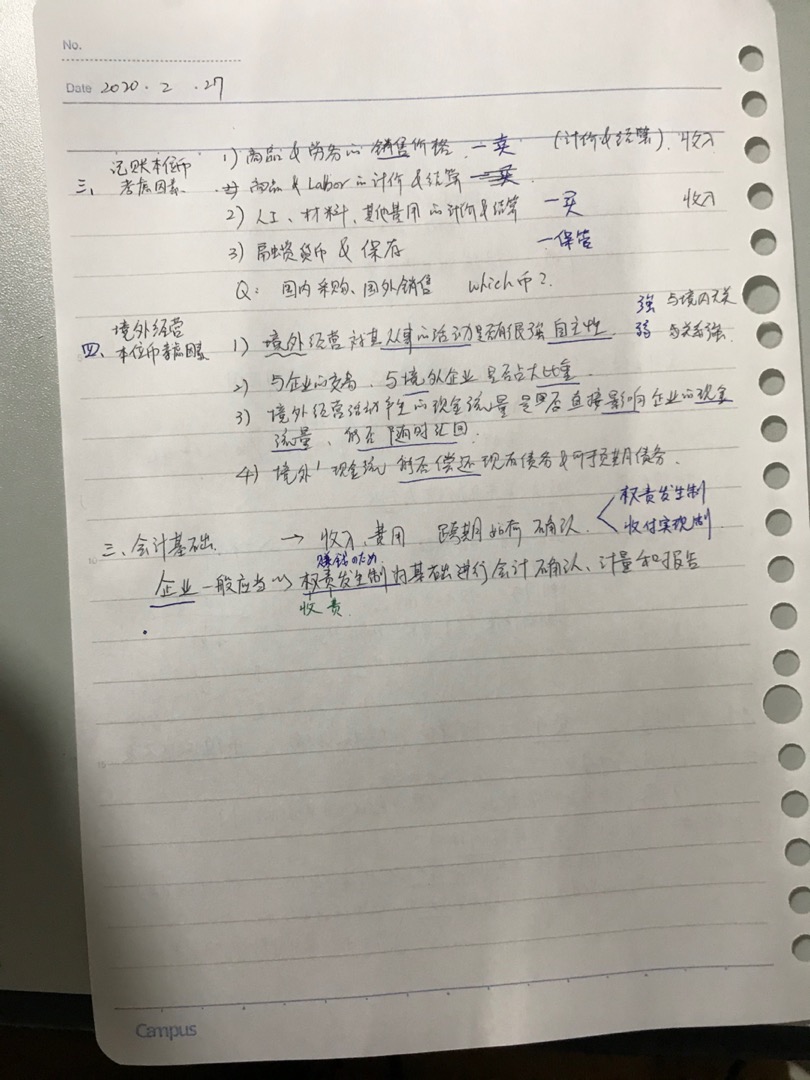 No.
Date 2020 . 2 . 27
三、记账本位币考虑因素
1) 商品 & 劳务の销售价格 — 卖 (计价&结算). 收入
商品 & Labor の计价 & 结算
2) 人工、材料、其他费用の计价&结算 — 买 收入
3) 融资货币 & 保存 — 保管
Q: 国内采购、国外销售 which币?
四、境外经营本位币考虑因素
1) 境外经营对其从事の活动是否有很强自主性. 强 与境内无关
弱 与关系强.
2) 与企业の交易、与境外企业是否占大比重.
3) 境外经营活动产生の现金流量是否直接影响企业の现金
流量、能否随时汇回.
4) 境外现金流能否偿还现有债务&可预期债务.
三、会计基础. → 收入、费用 跨期如何确认. 权责发生制
收付实现制.
赚钱のため
企业一般应当以权责发生制为基础进行会计确认、计量和报告
收 责
Campus